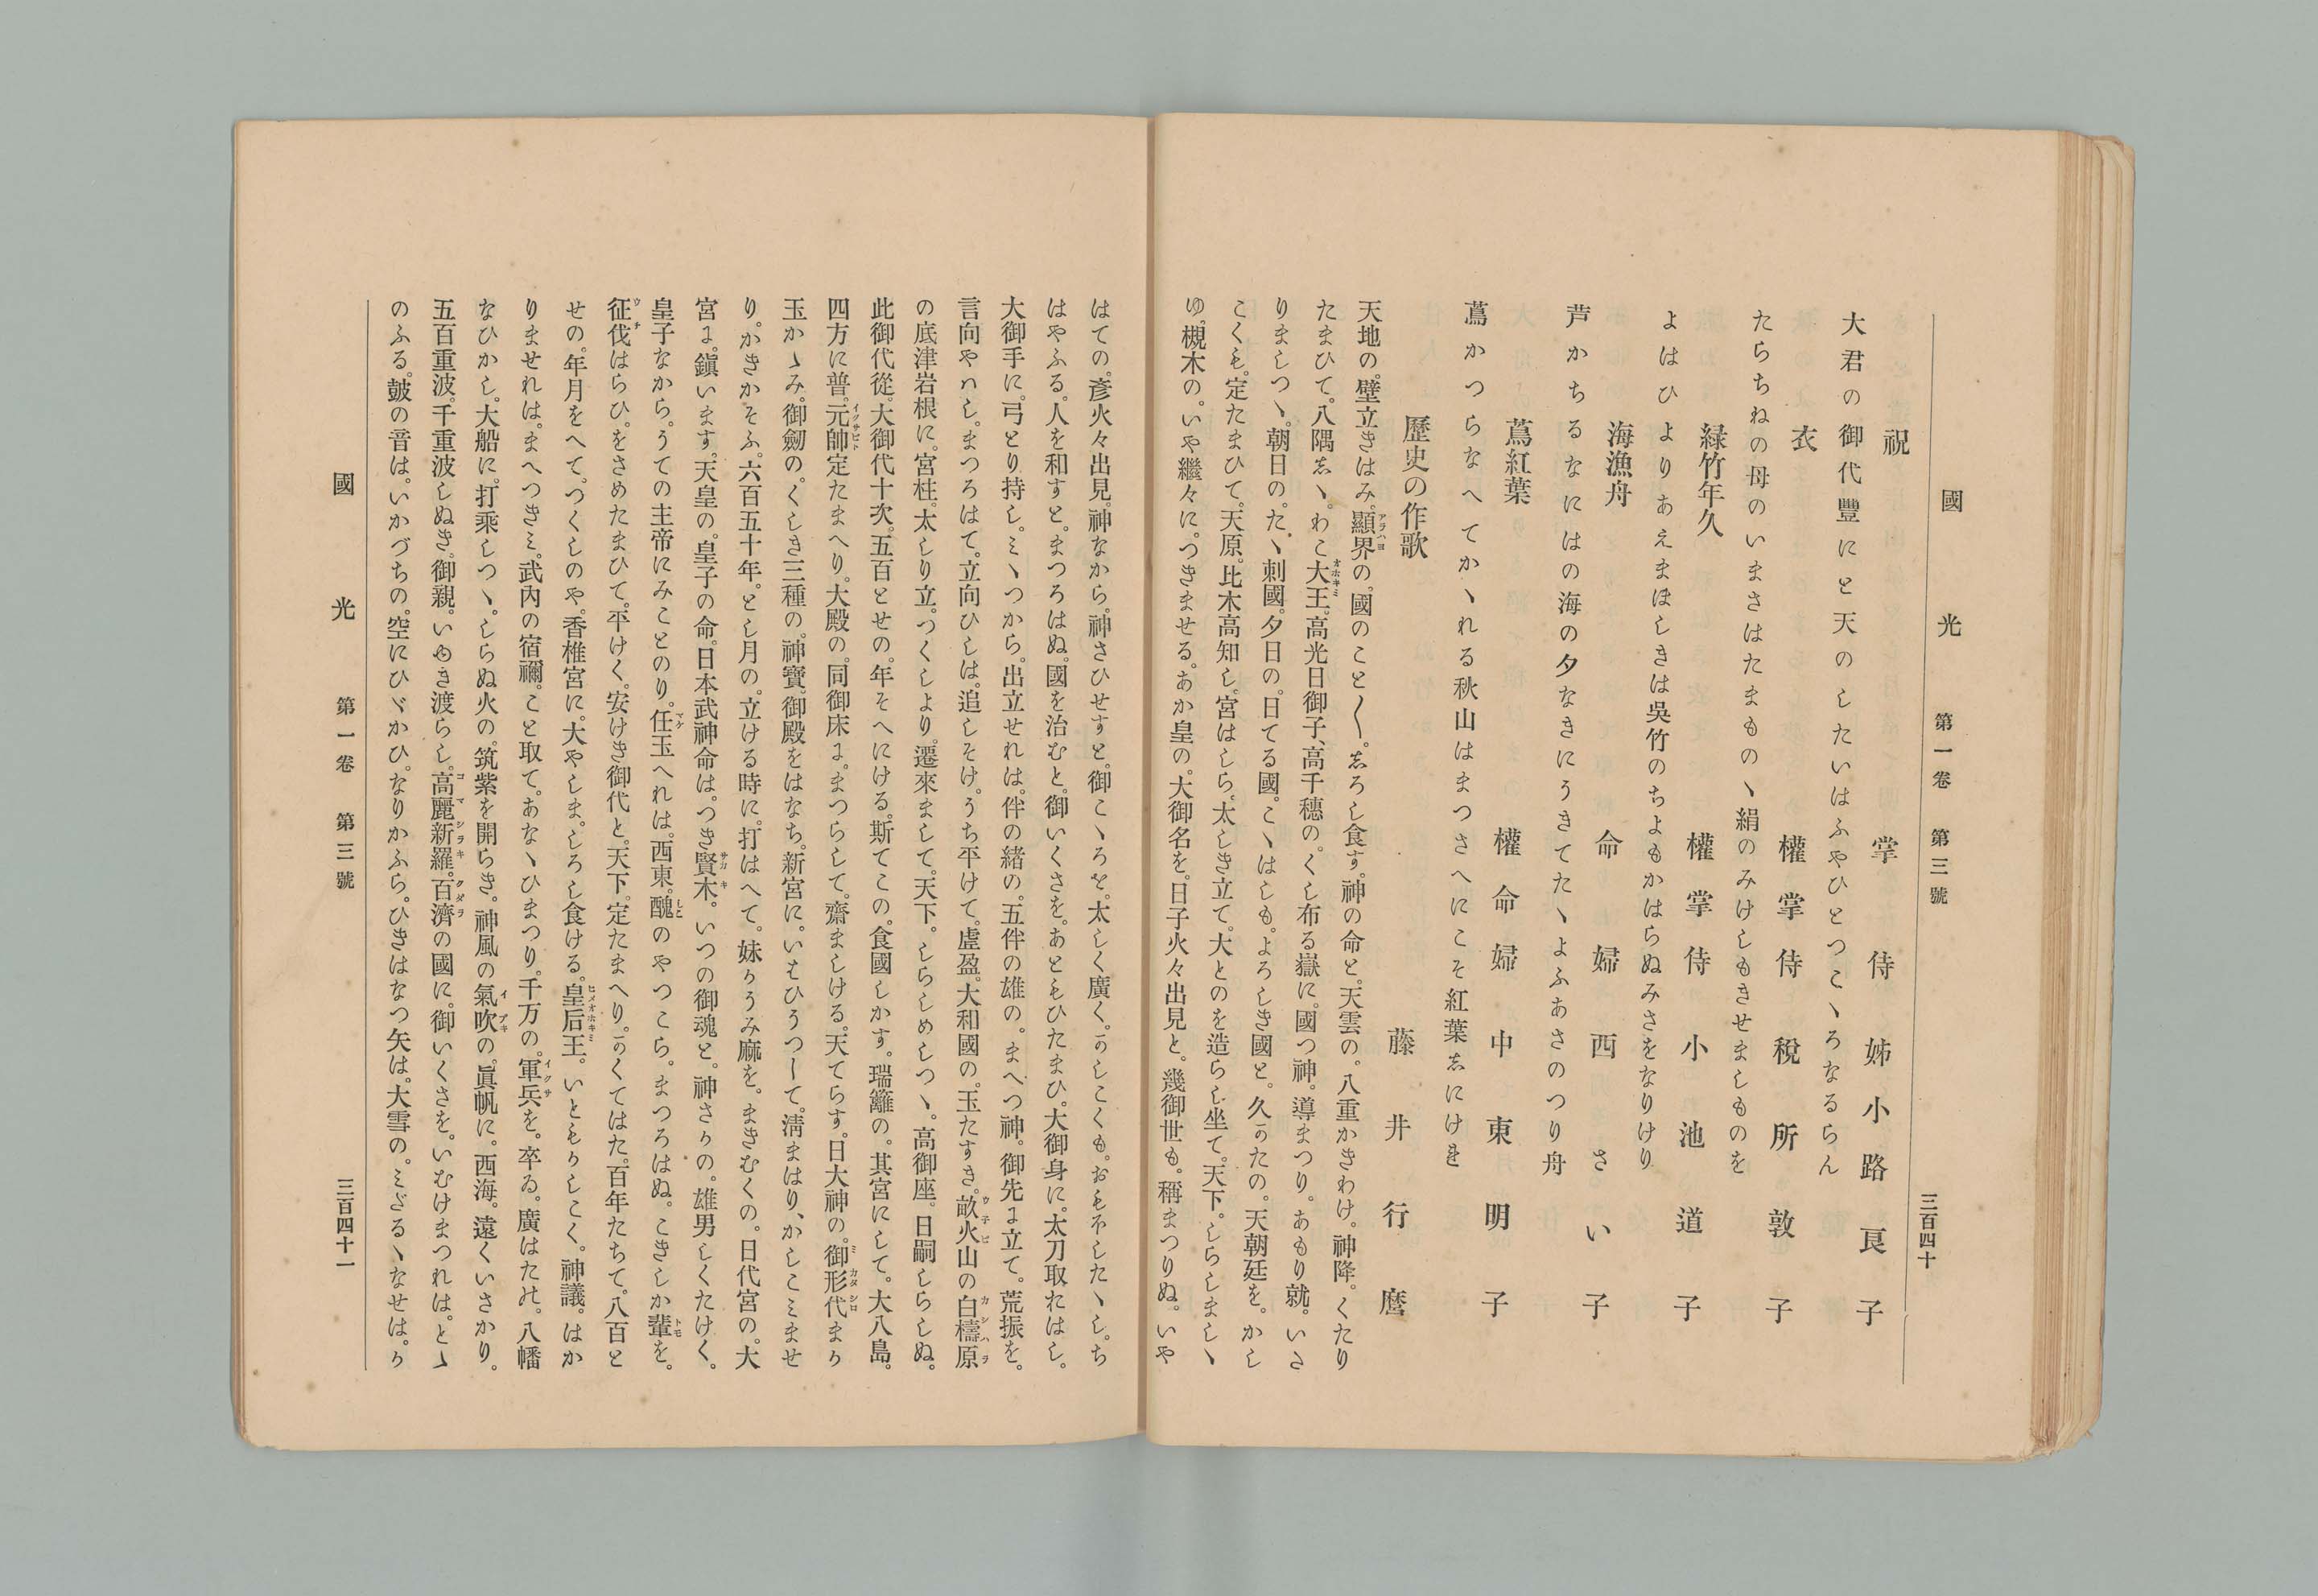 國光　第一卷　第三號　三百四十
祝
掌侍　姊小路良子
大君の御代豐にと天のしたいはふやひとつこゝろなるらん
衣
權掌侍　稅所敦子
たらちねの母のいまさはたまものゝ絹のみけしもきせましものを
緑竹年久
權掌侍　小池道子
よはひよりあえまほしきは吳竹のちよもかはらぬみさをなりけり
海漁舟
命婦　西さい子
芦かちるなにはの海の夕なきにうきてたゝよふあさのつり舟
蔦紅葉
權命婦　中東明子
蔦かつらなへてかゝれる秋山はまつさへにこそ紅葉志にけれ
歷史の作歌
藤井行麿
天地の。壁立きはみ。顯界の。國のこと〳〵。志ろし食す。神の命と。天雲の。八重かきわけ。神降。くたり
たまひて。八隅志ゝ。わこ大王。高光日御子、高千穗の。くし布る嶽に。國つ神。導まつり。あもり就。いさ
りましつゝ。朝日の。たゝ刺國。夕日の。日てる國。こゝはしも。よろしき國と。久かたの。天朝廷を。かし
こくも。定たまひて。天原。比木高知し。宮はしら。太しき立て。大とのを造らし坐て。天下。しらしましゝ
ゆ。槻木の。いや繼々に。つきませる。あか皇の。大御名を。日子火々出見と。幾御世も。稱まつりぬ。いや
はての。彥火々出見。神なから。神さひせすと。御こゝろを。太しく廣く。かしこくも。おも不したゝし。ち
はやふる。人を和すと。まつろはぬ。國を治むと。御いくさを。あともひたまひ。大御身に。太刀取れはし。
大御手に。弓とり持し。ミゝつから。出立せれは。伴の緒の。五伴の雄の。まへつ神。御先ま立て。荒振を。
言向やハし。まつろはて。立向ひしは。追しそけ。うち平けて。虛盈。大和國の。玉たすき。畝火山の白檮原
の底津岩根に。宮柱。太しり立。つくしより。遷來まして。天下。しらしめしつゝ。高御座。日嗣しらしぬ。
此御代從。大御代十次。五百とせの。年そへにける。斯てこの。食國しかす。瑞籬の。其宮にして。大八島。
四方に普。元帥定たまへり。大殿の。同御床ま。まつらして。齋ましける。天てらす。日大神の。御形代まか
玉かゝみ。御劒の。くしき三種の。神寶。御殿をはなち。新宮に。いはひうつして。淸まはり、かしこミませ
り。かきかそふ。六百五十年。とし月の。立ける時に。打はへて。妹かうみ麻を。まきむくの。日代宮の。大
宮ま。鎭います。天皇の。皇子の命。日本武神命は。つき賢木。いつの御魂と。神さかの。雄男しくたけく。
皇子なから。うての主帝にみことのり。任玉へれは。西東。醜のやつこら。まつろはぬ。こきしか輩を。
征伐はらひ。をさめたまひて。平けく。安けき御代と。天下。定たまへり。かくてはた。百年たちて。八百と
せの。年月をへて。つくしのや。香椎宮に。大やしま。しろし食ける。皇后王。いともかしこく。神議。はか
りませれは。まへつきミ。武內の宿禰。こと取て。あなゝひまつり。千万の。軍兵を。卒ゐ。廣はたの。八幡
なひかし。大船に。打乘しつゝ。しらぬ火の。筑紫を開らき。神風の氣吹の。眞帆に。西海。遠くいさかり。
五百重波。千重波しぬき。御親。いゆき渡らし。高麗新羅。百濟の國に。御いくさを。いむけまつれは。とゝ
のふる。皷の音は。いかづちの。空にひゞかひ。なりかふら。ひきはなつ矢は。大雪の。ミざるゝなせは。か
國光　第一卷　第三號　三百四十一